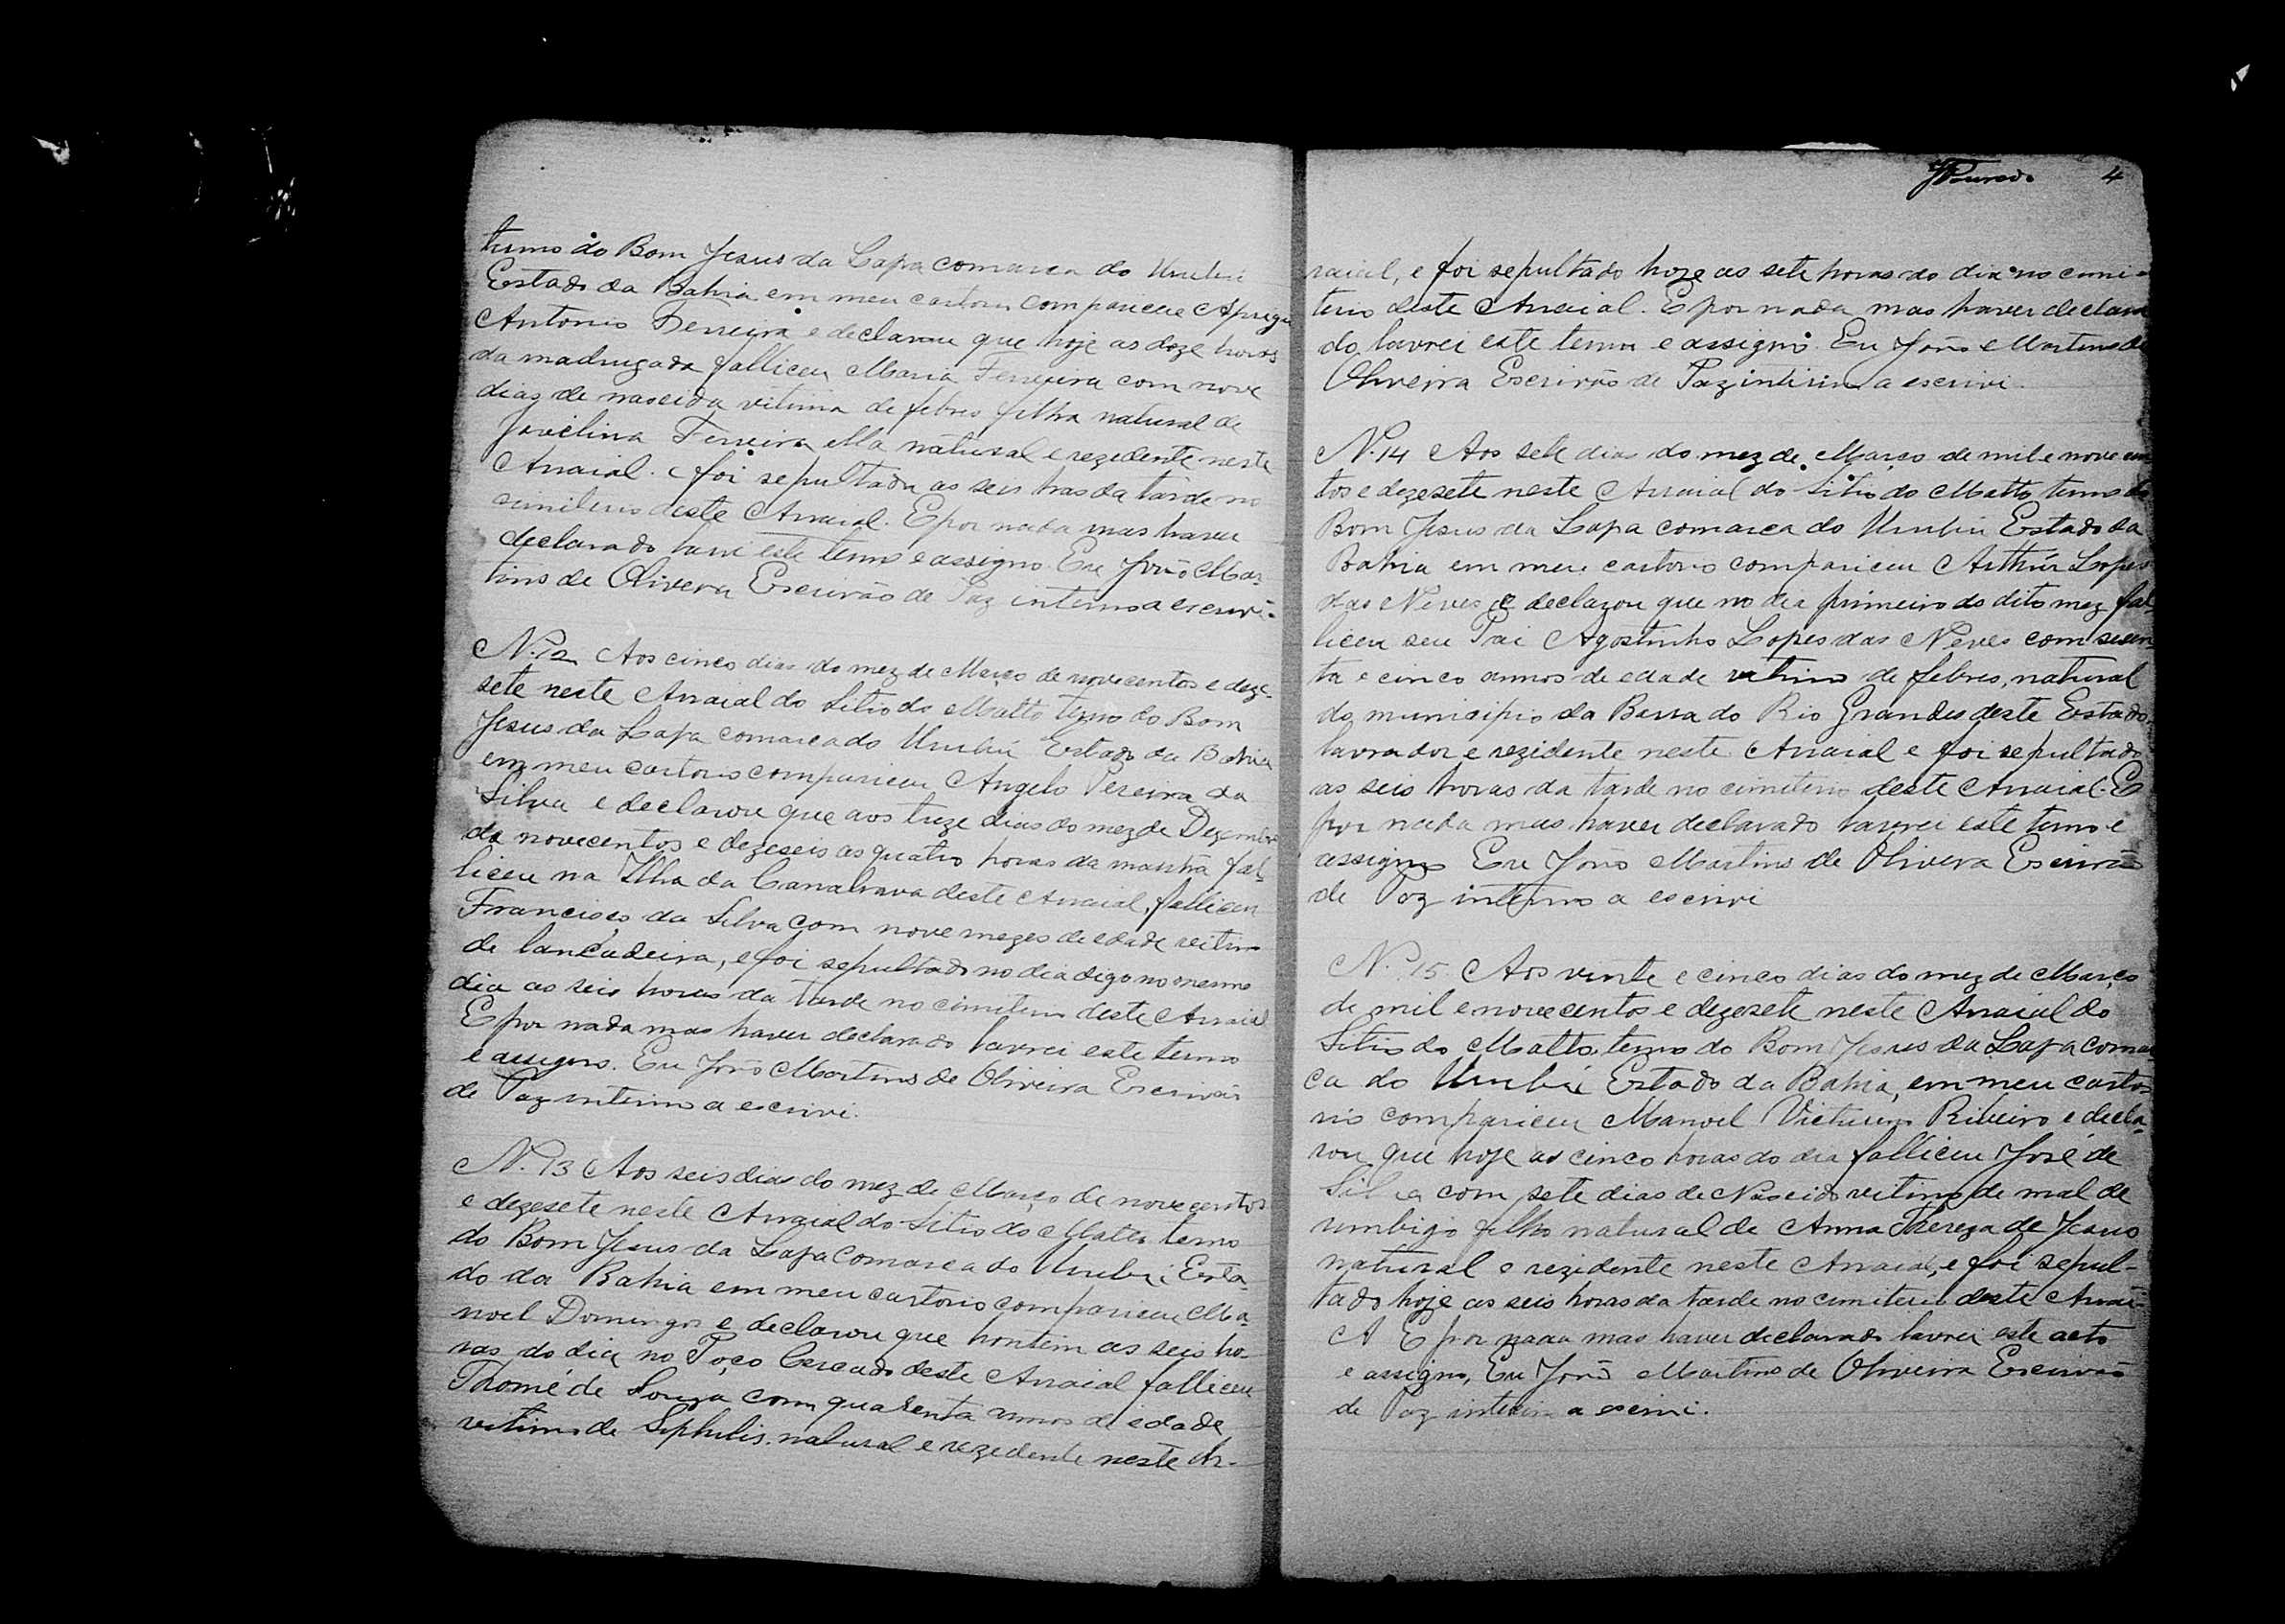 termo do Bom Jesus da Lapa comarca do Urubú
Estado da Bahia em meu cartorio compariceu
Antonio Ferreira e declarou que hoje as doze horas
da madrugada falliceu Maria Ferreira com nove
dias de nascida vitima de febres filha natural de
Jovelina Ferreira ella natural e rezedente neste
Arraial. e foi sepultada as seis hras da tarde no
simiterio deste Arraial. E por nada mas haver
declarado lavrei este termo e assigno. Eu João Mar-
tins de Olivera Escrivão de Paz interino a escrevi.
N. 12 Aos cinco dias do mez de Março de novecentos e deze-
sete neste Arraial do Sitio do Matto termo do Bom
Jesus da Lapa comarca do Urubú Estado da Bahia
em meu cartorio compariceu Angelo Pereira da
Silva e declarou que aos treze dias do mez de Dezembro
de novecentos e dezeseis as quatro horas da manhã fal-
liceu na Ilha da Canabrava deste Arraial, falliceu
Francisco da Silva com nove mezes de edade vitimo
de lancadeira, e foi sepultado no dia digo no mesmo
dia as seis horas da tarde no cimiterio deste Arraial
E por nada mas haver declarado lavrei este termo
e assigno. Eu João Martins de Oliveira Escrivão
de Paz interino a escrivi.
N. 13 Aos seis dias do mez de Março de novecentos
e dezesete neste Arraial do Sitio do Matto termo
do Bom Jesus da Lapa comarca do Urubú Esta-
do da Bahia em meu cartorio compariceu Ma-
noel Domingos e declarou que hontem as seis ho-
ras do dia no Poço Cercado deste Arraial falliceu
Thomé de Souza com quarenta annos de edade
vitimo de Siphilis. natural e rezedente neste Ar-
4
raial, e foi sepultado hoze as sete horas do dia no cimi-
terio deste Arraial. E por nada mas haver declara
do lavrei este termo e assigno. Eu João Martins de
Oliveira Escrivão de Paz interino a escrivi.
N. 14 Aos sete dias do mez de Março de mil e nove cen-
tos e dezesete neste Arraial do Sitio do Matto termo do
Bom Jesus da Lapa comarca do Urubú Estado da
Bahia em meu cartorio compariceu Arthúr Lopes
das Neves e declarou que no dia primeiro do dito mez fal-
liceu seu Pai Agostinho Lopes das Neves com secen-
ta e cinco annos de edade vitimo de febres, natural
do municipio da Barra do Rio Grandes deste Estado.
lavrador e rezidente neste Arraial e foi sepultado
as seis horas da tarde no cimiterio deste Arraial. E
por nada mas haver declarado lavrei este termo e
assigno Eu João Martins de Olivera Escrivão
de Paz interino a escrivi
N. 15 Aos vinte e cinco dias do mez de Março
de mil e novecentos e dezesete neste Arraial do
Sitio do Matto, termo do Bom Jesus da Lapa comar-
ca do Urubú Estado da Bahia, em meu carto-
rio compariceu Manoel Victurino Ribeiro e decla-
rou que hoje as cinco horas do dia falliceu José de
Silva com sete dias de Nascido vitimo de mal de
umbigo filho natural de Anna Thereza de Jesus
natural e rezidente neste Arraial, e foi sepul-
tado hoje as seis horas da tarde no cimiterio deste Arrai-
E por nada mas haver declarado lavrei este acto
e assigno, Eu João Martins de Oliveira Escrivão
de Paz interino a escrivi.